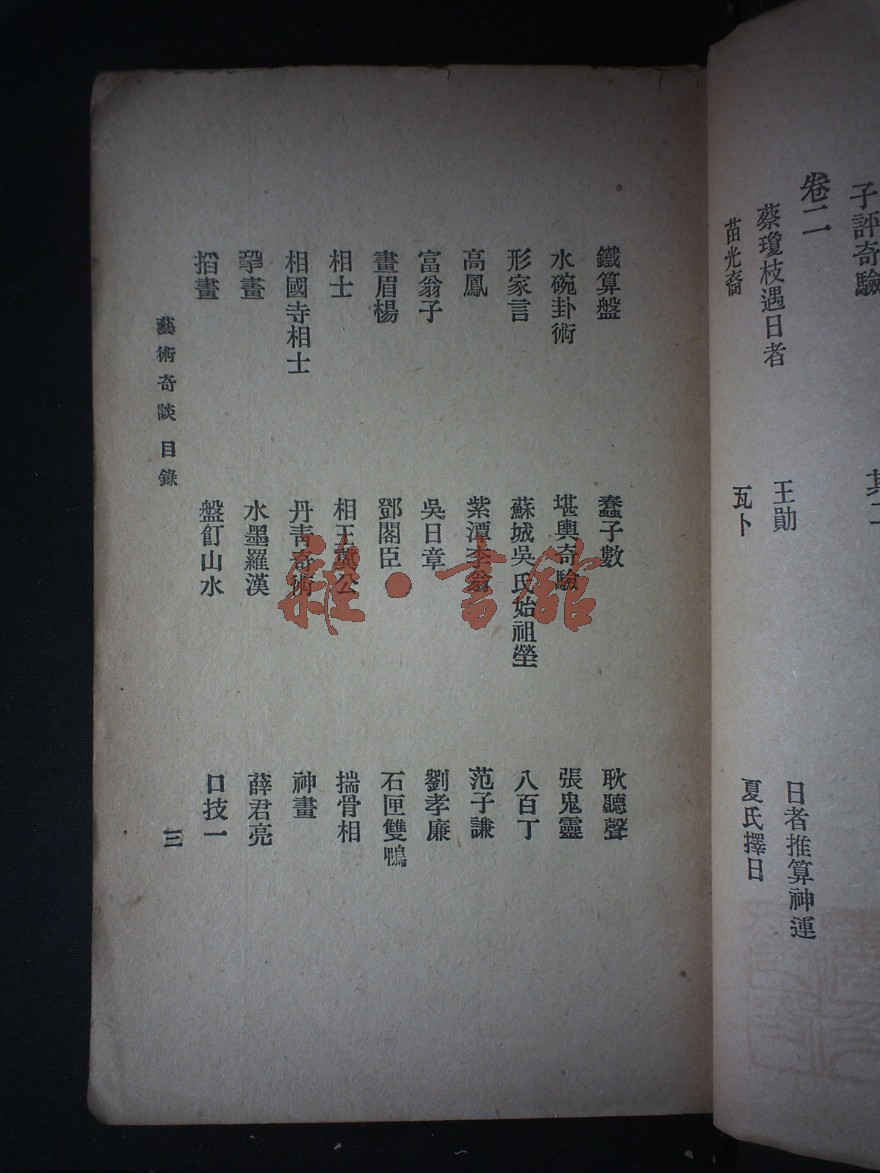 子評奇驗
其二
卷二
蔡瓊枝遇日者　王勛　日者推算神運
苗光裔　瓦卜　夏氏擇日
鐵算盤　蠢子數　耿聽聲
水碗卦術　堪輿奇驗　張鬼靈
形家言　蘇城吳氏始祖塋　八百丁
高鳳　紫潭李翁　范子謙
富翁子　吳日章　劉孝廉
畫眉楊　鄧閣臣　石匣雙鴨
相士　相王冀公　揣骨相
相國寺相士　丹青奇術　神畫
水墨羅漢　薛君亮
搯畫　盤飣山水　口技一
藝術奇談 目錄 三
雜·書館